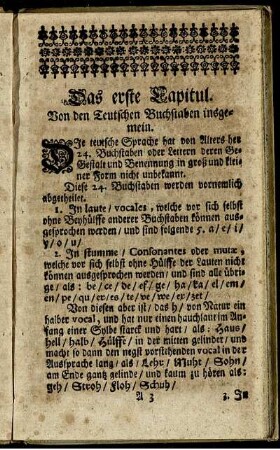 Das erste Capitul.
Von den Teutschen Buchstaben insge-
mein.
DIe teutsche Sprache hat von Alters her
24. Buchstaben oder Lettern deren Ge-
Gestalt und Benennung in groß und klei-
ner Form nicht unbekannt.
Diese 24. Buchstaben werden vornemlich
abgetheilet.
1. In laute / vocales, welche vor sich selbst
ohne Beyhülffe anderer Buchstaben können aus-
gesprochen werden / und sind folgende 5. a / e / i /
y / o / u /
2. In stumme / Consonantes oder mutæ,
welche vor sich selbst ohne Hülffe der Lauten nicht
können ausgesprochen werden / und sind alle übri-
ge / als: be / ce / de / ef / ge / ha / ka / el / em /
en / pe / qu / er / es / te / ve / we / ex / zet /
Von diesen aber ist / das h / von Natur ein
halber vocal, und hat nur einen hauchlaut im An-
fang einer Sylbe starck und hart / als: Haus /
hell / halb / Hülffe / in der mitten gelinder / und
macht so dann den negst vorstehenden vocal in der
Aussprache lang / als / Lehr / Muht / Sohn /
am Ende gantz gelinde / und kaum zu hören als:
geh / Stroh / Floh / Schuh /
A 3 3. In